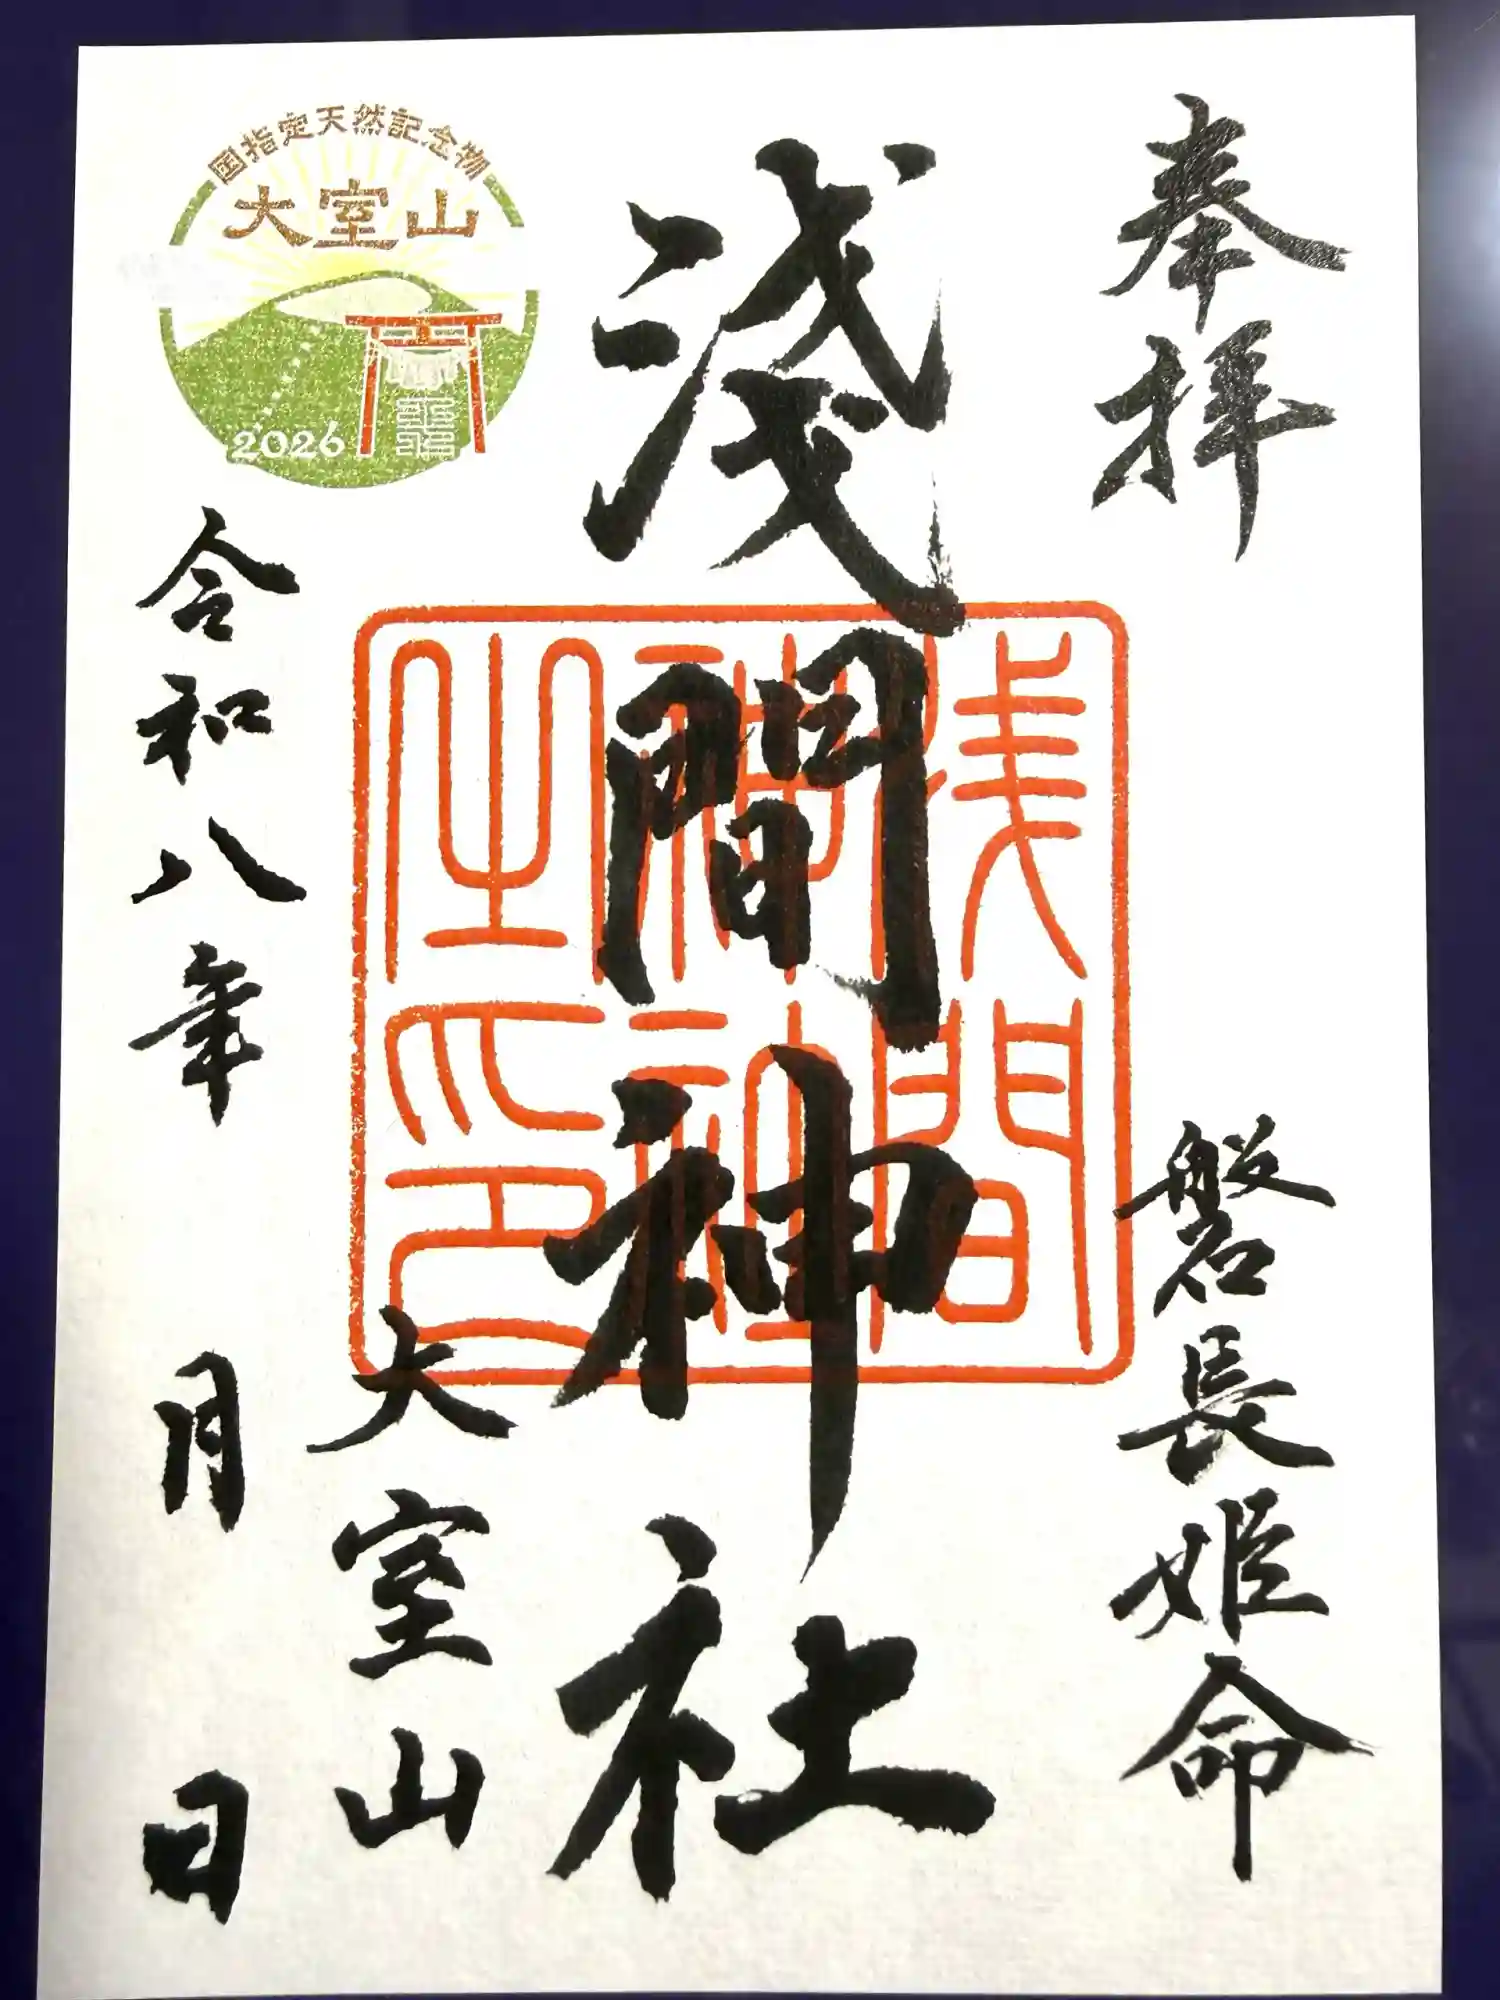 奉拝
磐長姫命
淺間神社
浅間
神社
之印
大室山
国指定天然記念物
大室山
2026
令和八年
月
日